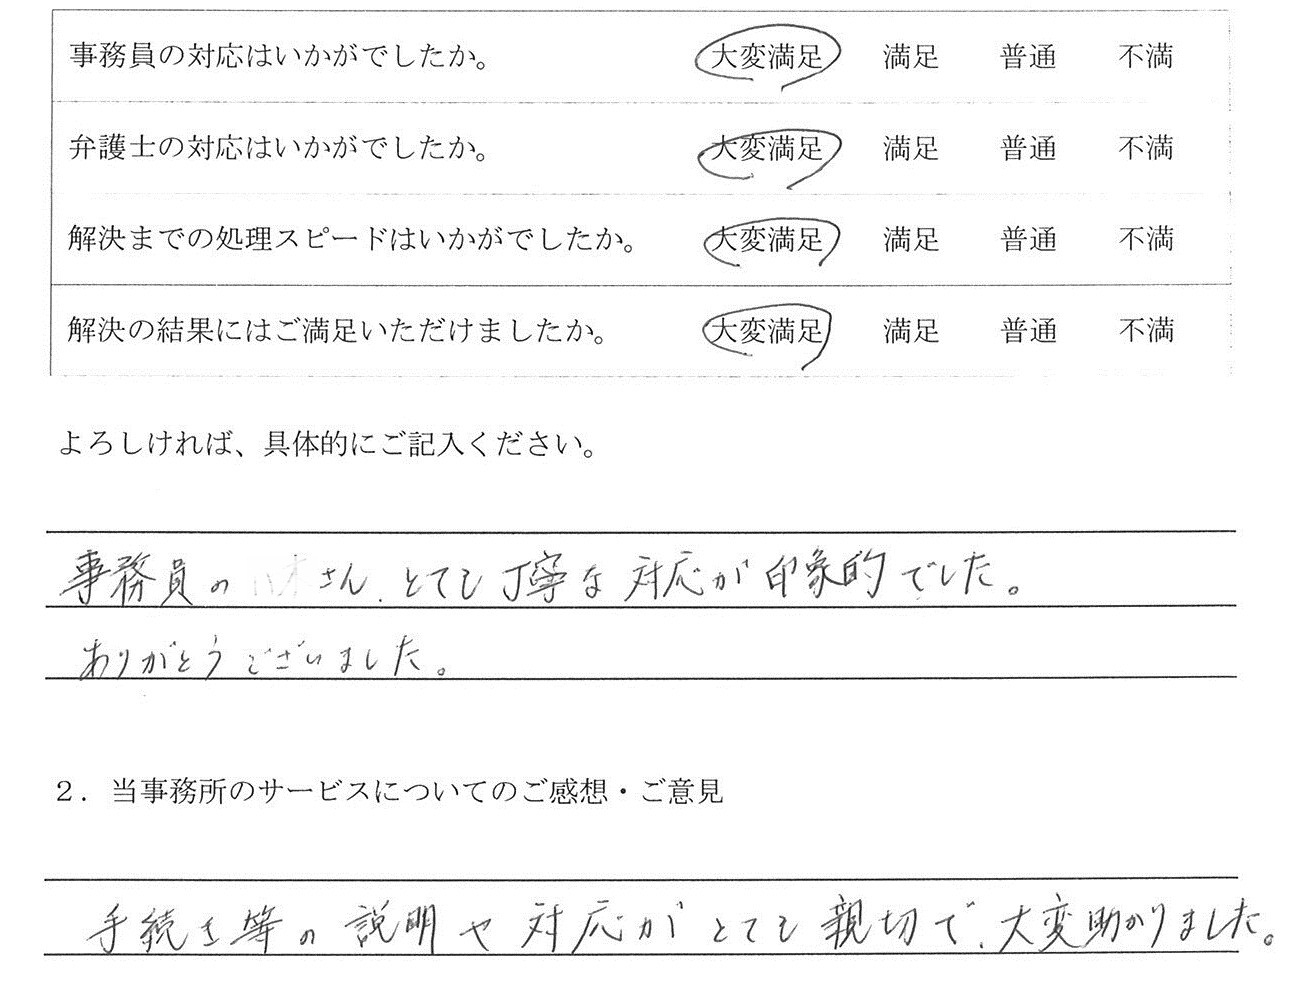 事務員の対応はいかがでしたか。 大変満足 満足 普通 不満
弁護士の対応はいかがでしたか。 大変満足 満足 普通 不満
解決までの処理スピードはいかがでしたか。 大変満足 満足 普通 不満
解決の結果にはご満足いただけましたか。 大変満足 満足 普通 不満
よろしければ、具体的にご記入ください。
事務員の さん、とても丁寧な対応が印象的でした。
ありがとうございました。
２．当事務所のサービスについてのご感想・ご意見
手続き等の説明や対応がとても親切で、大変助かりました。